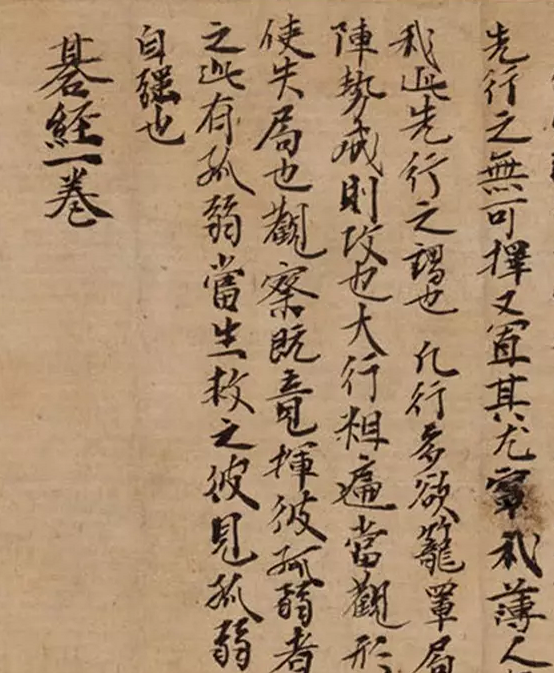 先行之無可擇又宜其尤牢我薄人
我此先行之謂也 凡行多欲籠罩局
陣勢成則攻也大行粗遍當觀形
使失局也觀察既竟揮彼孤弱者
之此有孤弱當生救之彼見孤弱
自强也
碁經一卷